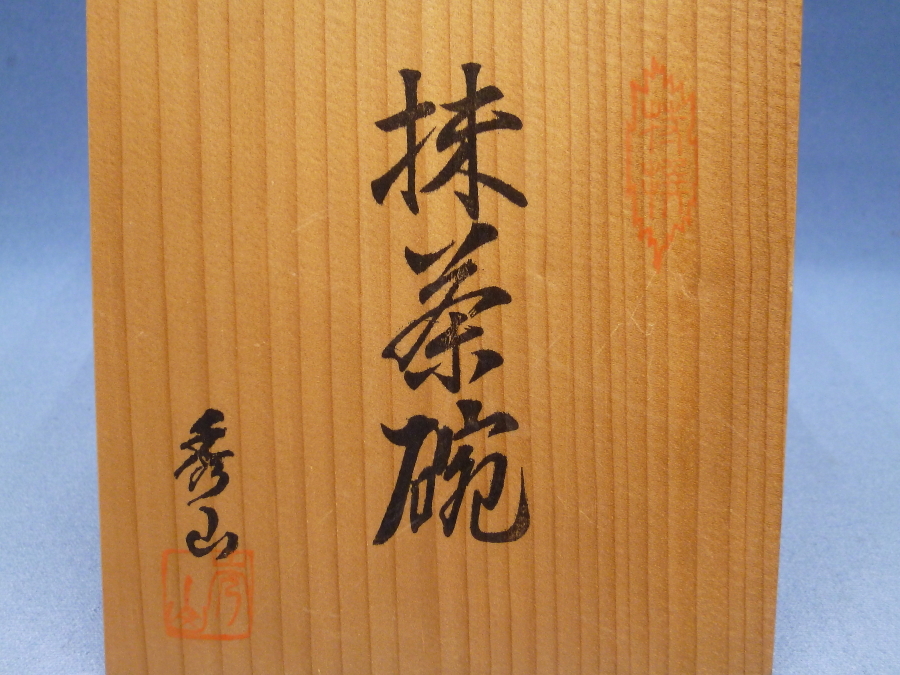 抹茶碗
秀山